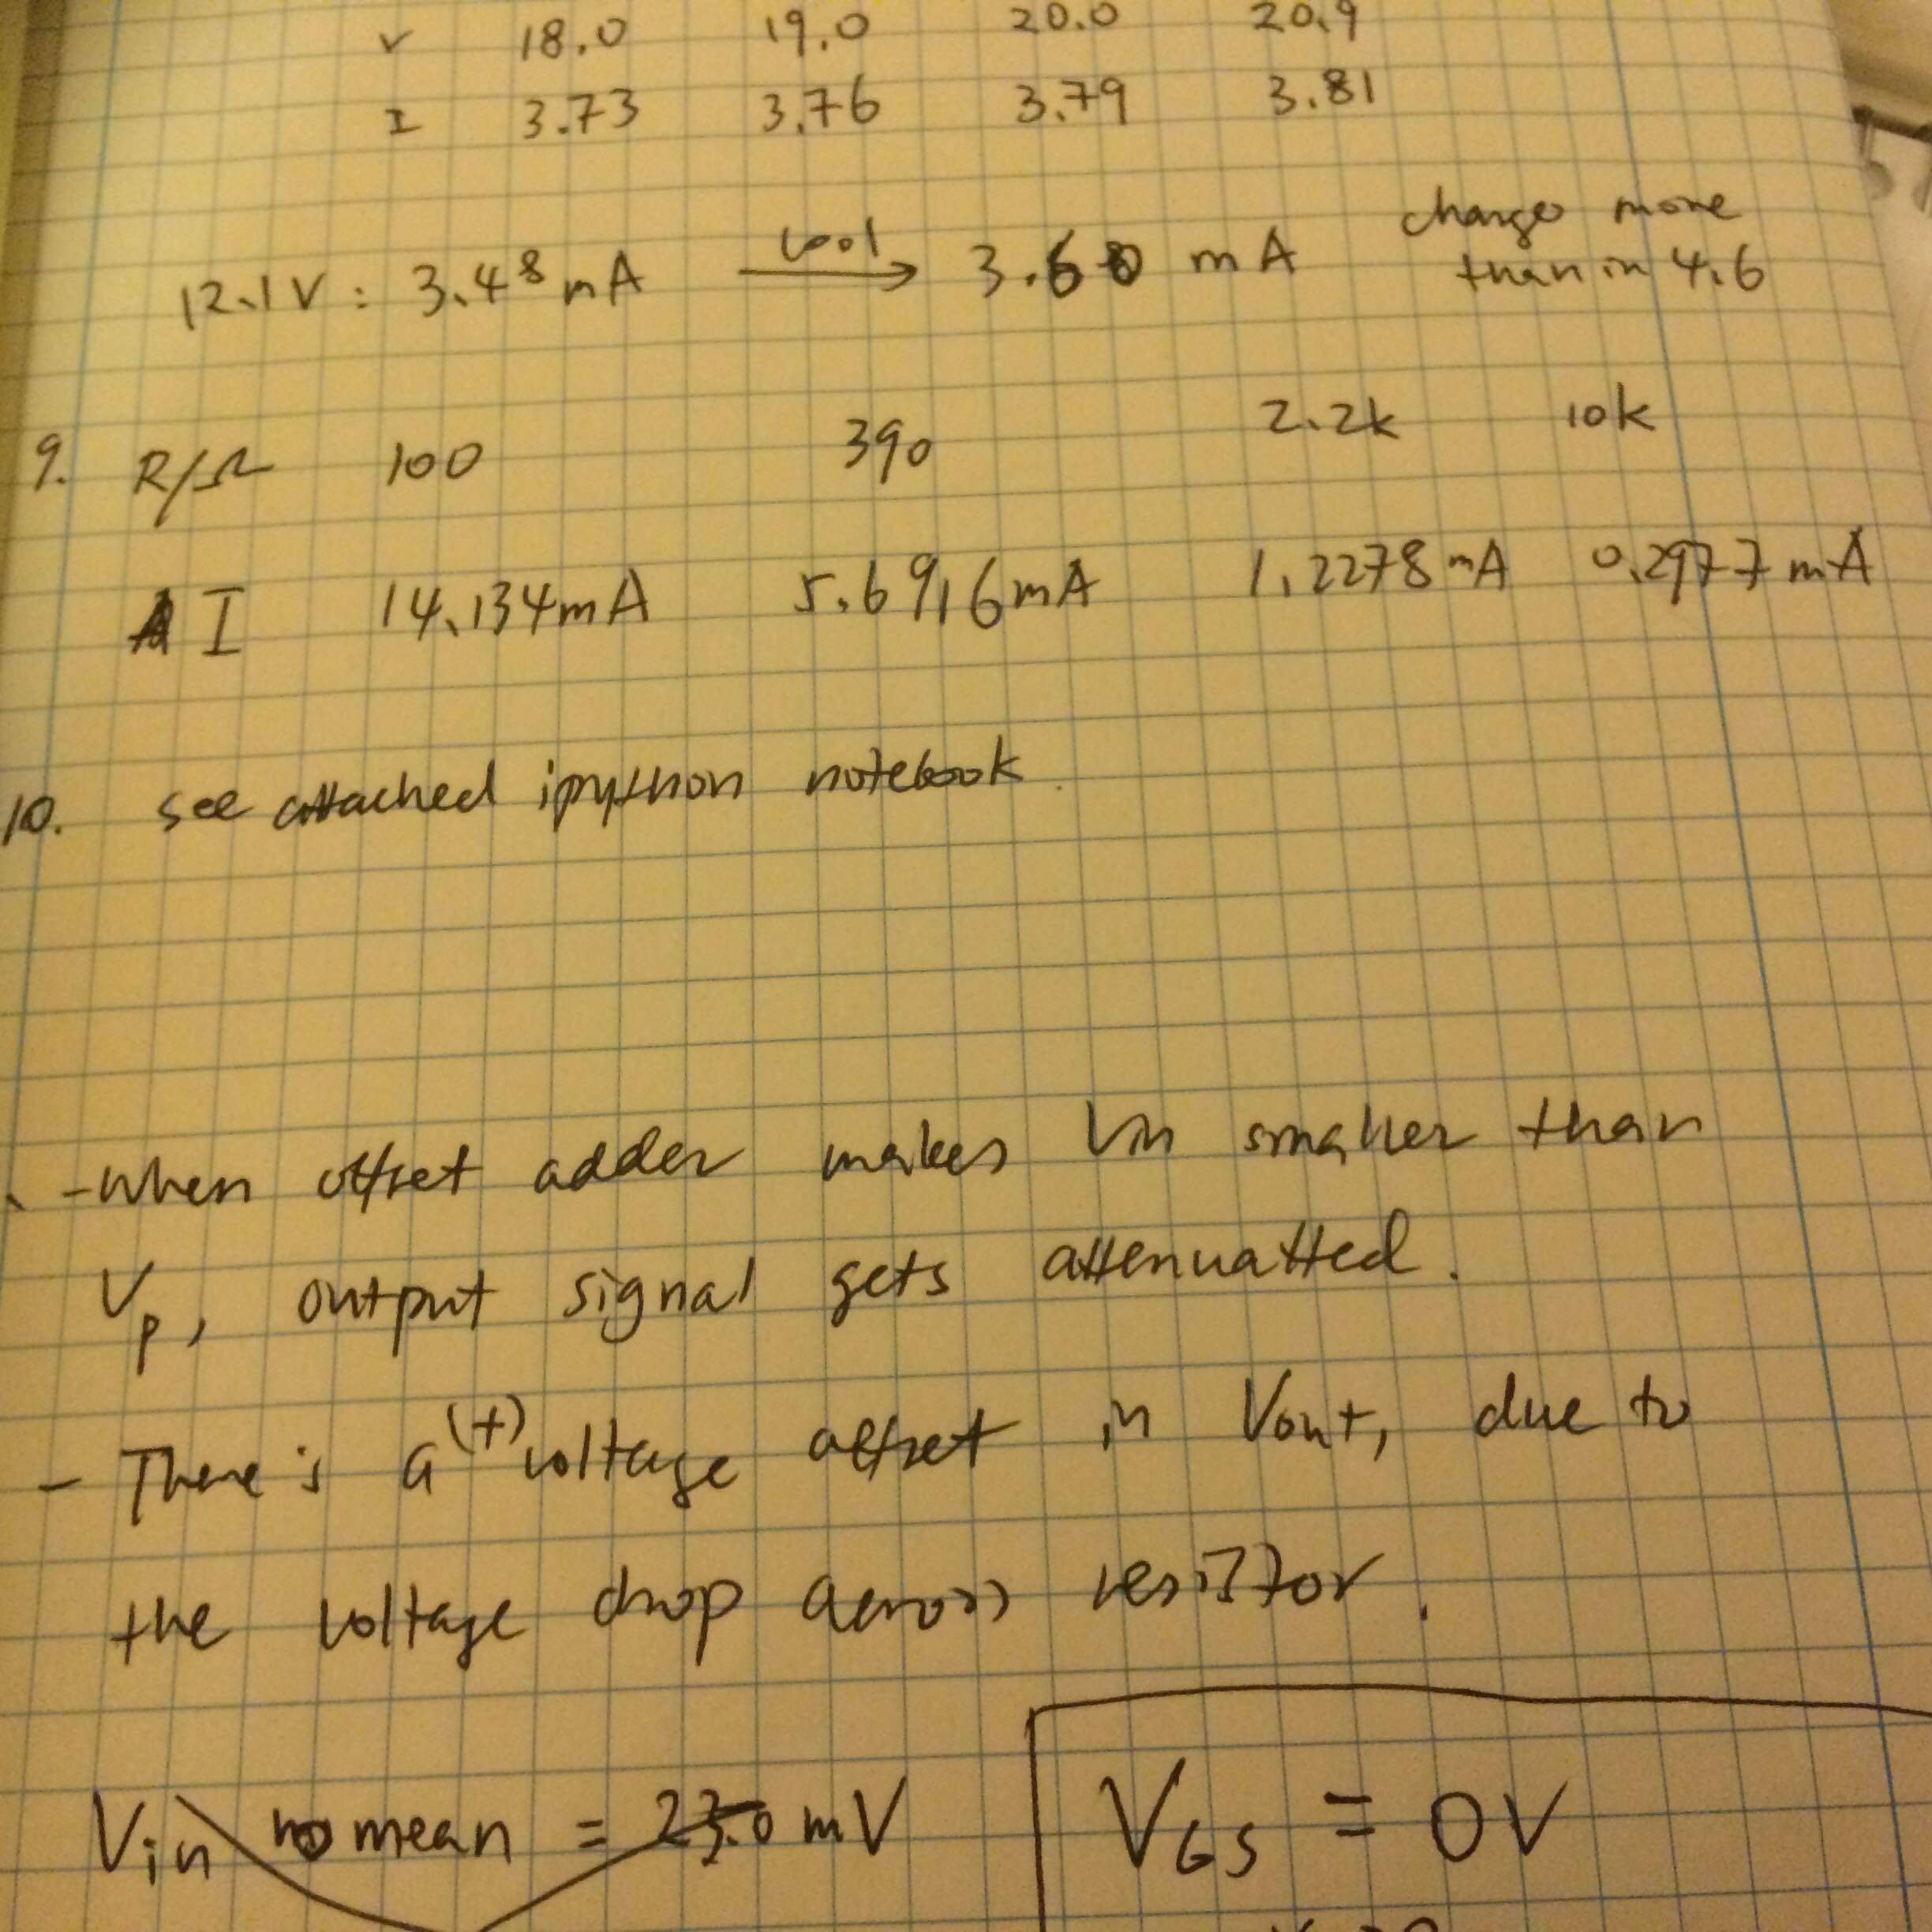 V 18.0 19.0 20.0 20.9
I 3.73 3.76 3.79 3.81
12.1V : 3.48 mA cool → 3.60 mA change more than in 4.6
9. R/Ω 100 390 2.2k 10k
I 14.134mA 5.6916mA 1.2278mA 0.2977mA
10. see attached ipython notebook.
- when offset adder makes Vin smaller than
Vp, output signal gets attenuatted.
- There's a (+) voltage offset in Vout, due to
the voltage drop across resistor.
Vin mean = 23.0 mV
VGS = 0V